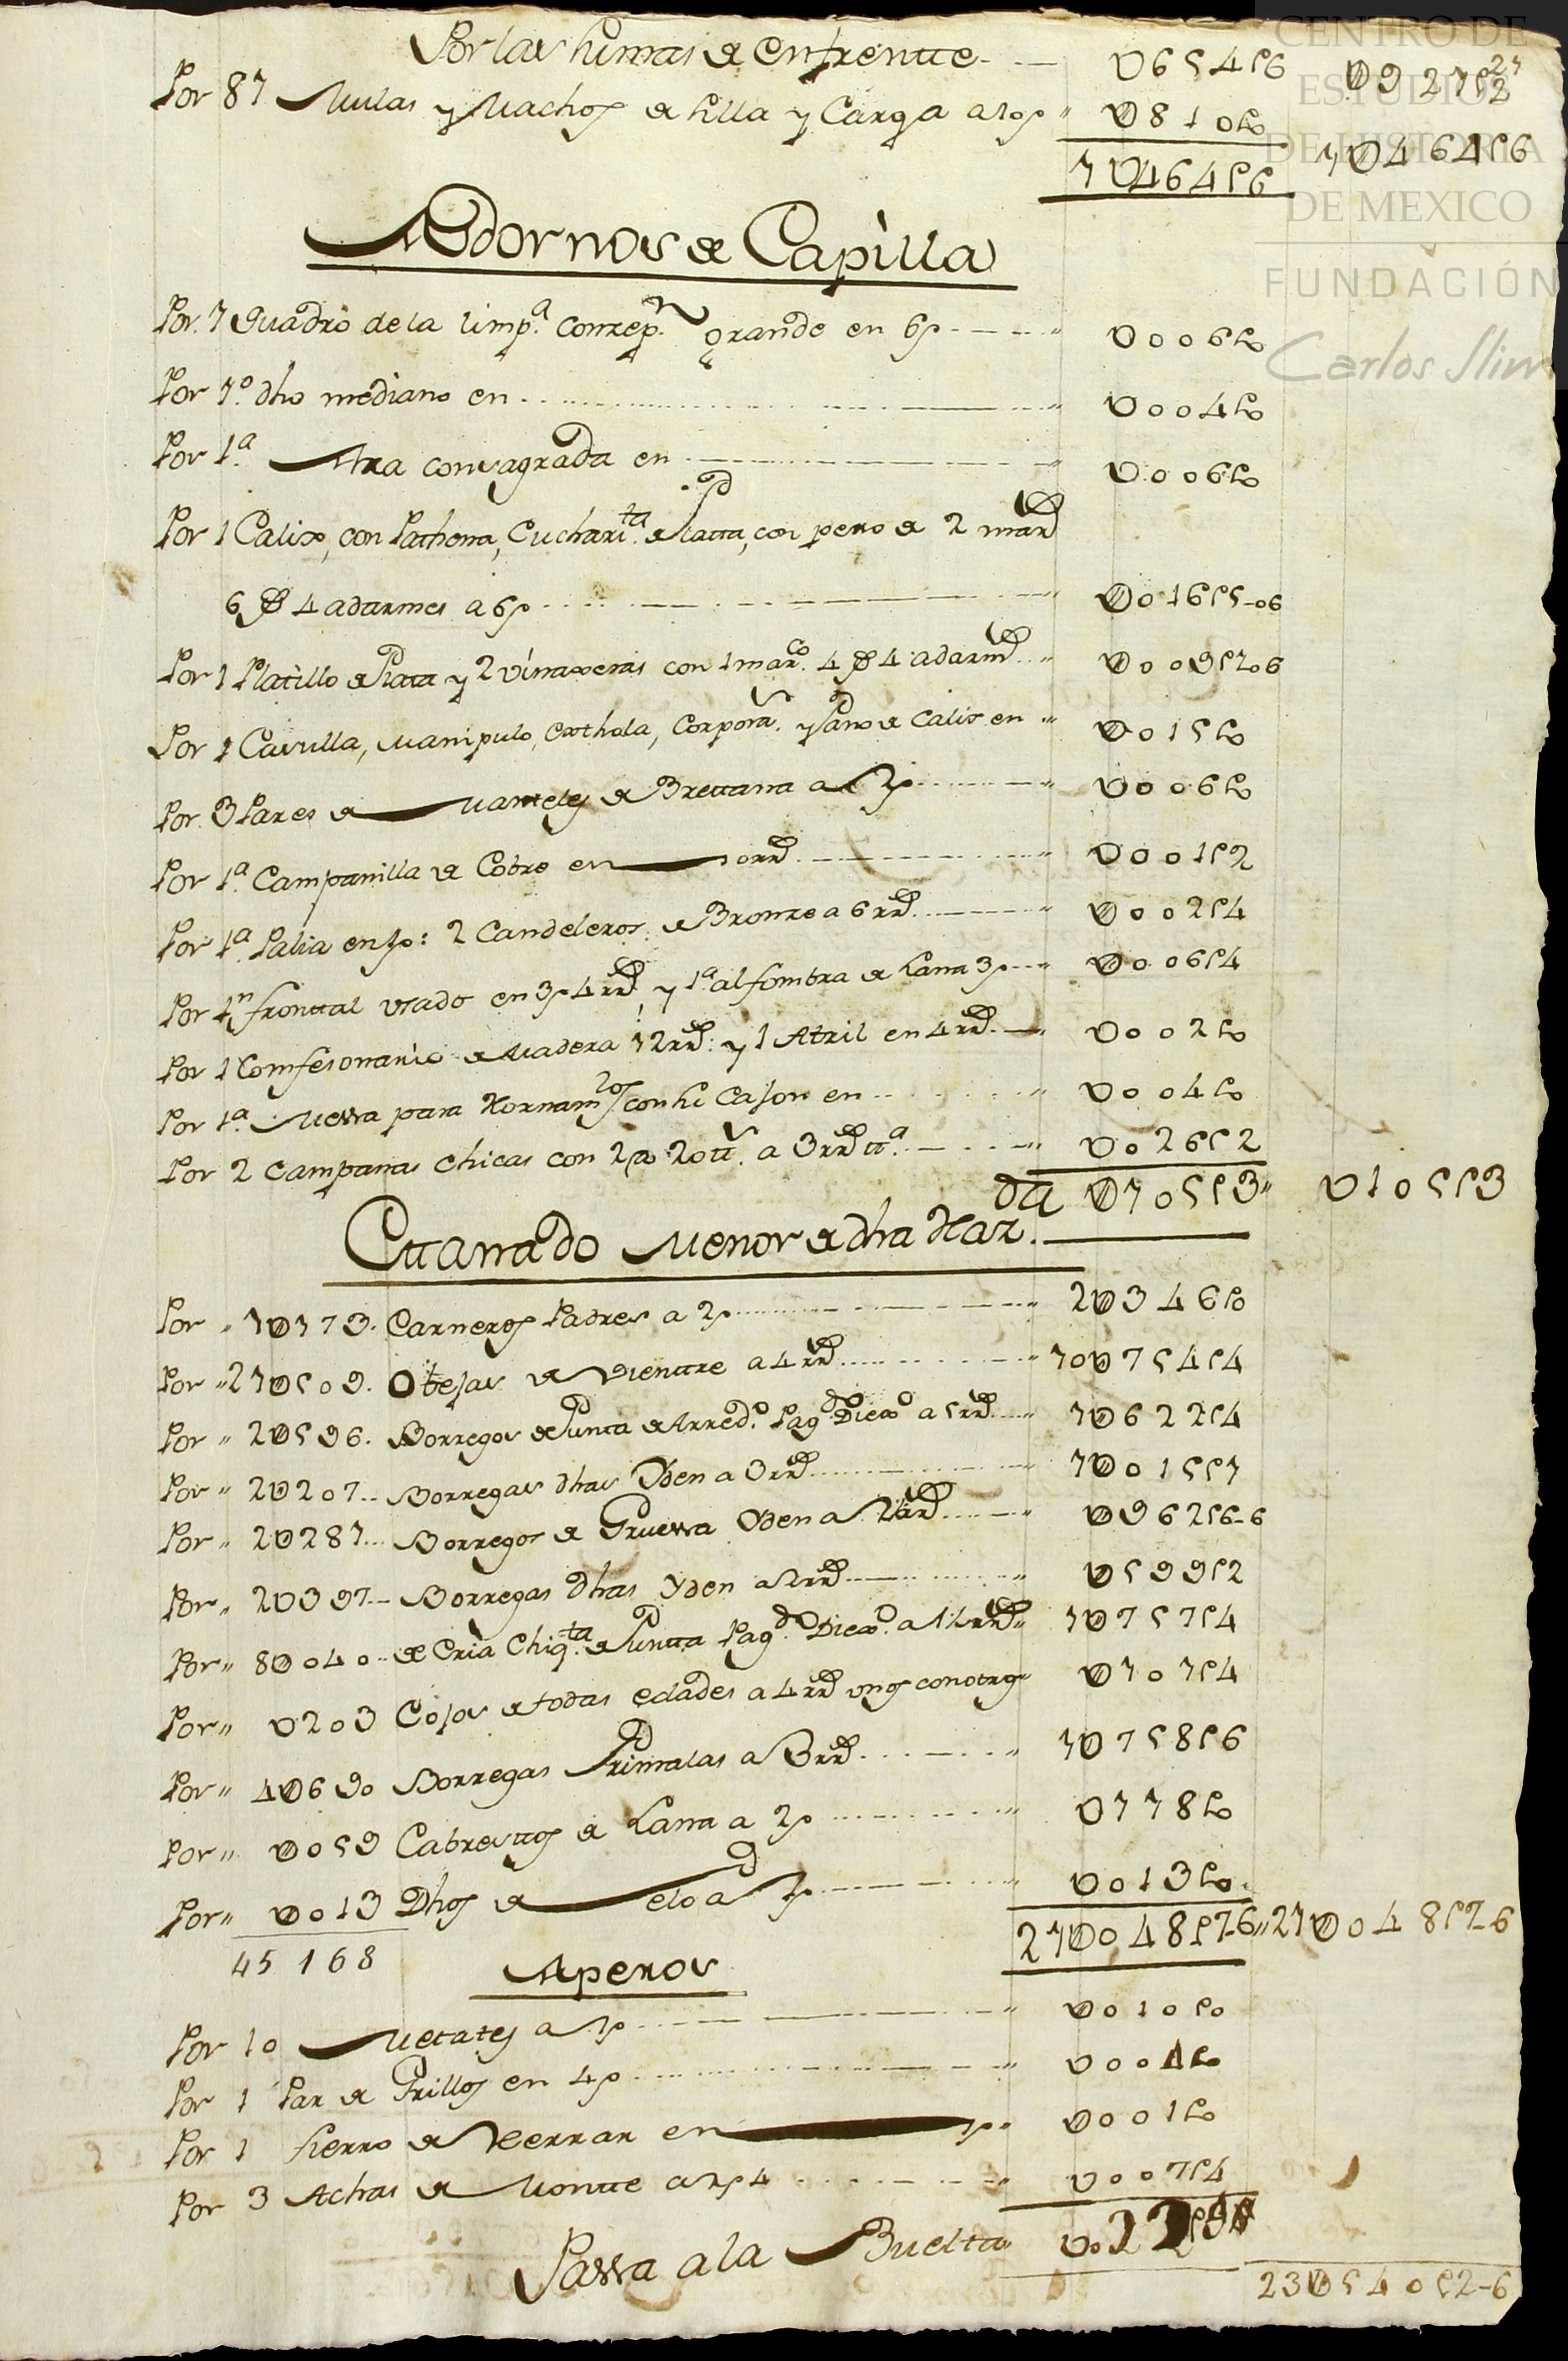 Por las sumas de enfrente 0U654p6 0U927p2
Por 87 Mulas y Machos de silla y Carga a 10p 0U810p
1U464p6 1U464p6
Adornos de Capilla
Por 1 Quadro de la limp.a Concep.n grande en 6p U006p
Por 1.o dho mediano en U004p
Por 1.a Ara consagrada en U006p
Por 1 Calix, con Pathena, Cucharit.ta de Plata, con peso de 2 mar.s
6 8 4 adarmes a 6p U016p5-06
Por 1 Platillo de Plata y 2 vinaxeras con 1 marco 4 8 4 adarm.s U009p506
Por 1 Casulla, Manipulo, Esthola, Corpora.s y Paño de Calix en U015p
Por 3 Pares de Manteles de Bretaña a 2p U006p
Por 1.a Campanilla de Cobre en 10rr.s U001p2
Por 1.a Palia en 1p: 2 Candeleros de Bronze a 6rr.s U002p4
Por 1.n frontal usado en 3p4rr.s y 1.a alfombra de Lana 3p U006p4
Por 1 Comfesonario de Madera 12rr.s: y 1 Atril en 4rr.s U002p
Por 1.a Messa para Hornam.tos con su Cajon en U004p
Por 2 Campanas chicas con 2@ 20 tt.s a 3rr.s tt.a U026p2
U105p3 U105p3
Ganado Menor de dha Haz.da
Por 1U173. Carneros Padres a 2p 2U346p
Por 21U509. Obejas de Vientre a 4rr.s 10U754p4
Por 2U596. Borregos de Punta de Arred.o Pag.do Diez.o a 5rr.s 1U622p4
Por 2U207. Borregas dhas Yden a 3rr.s
Por 2U287. Borregos de Gruessa Yden a U962p6-6
Por 2U397. Borregas dhas Yden a 2rr.s U599p2
Por 8U040. de Cria Chiq.ta de Punta Pag.do Diez.o a 1U757p4
Por U203 Cojos de todas edades a 4rr.s unos con otros U101p4
Por 4U690 Borregas Primalas a 3rr.s 1U758p6
Por U059 Cabrestos de Lana a 2p U118p
Por U013 Dhos de Pelo a 1p U013p
45 168 21U048p7-6 21U048p7-6
Aperos
Por 10 Metates a 1p U010p
Por 1 Par de Grillos en 4p U004p
Por 1 fierro de Herrar en 1p U001p
Por 3 Achas de Monte a 2p4 U007p4
Passa a la Buelta U022p4
23U540p2-6
CENTRO DE
ESTUDIOS
DE HISTORIA
DE MEXICO
FUNDACIÓN
Carlos Slim